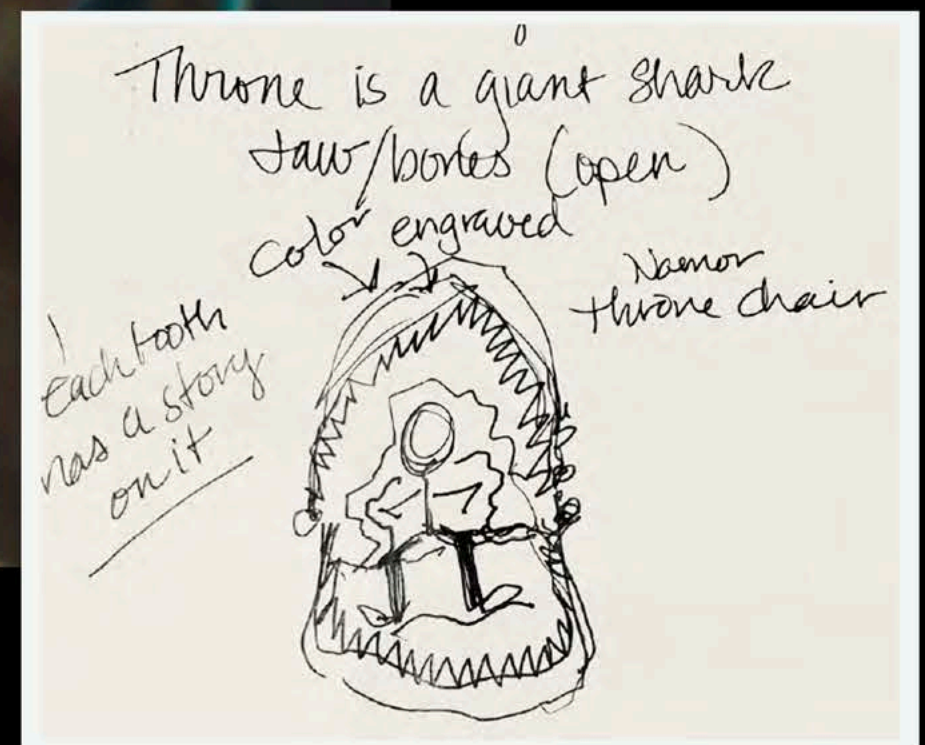 Throne is a giant shark
Jaw/bones (open)
color engraved
Namor
throne chair
each tooth
has a story
on it